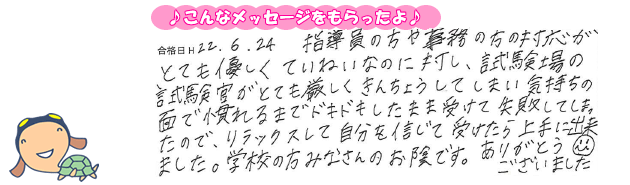 ♪こんなメッセージをもらったよ♪
合格日H22.6.24 指導員の方や事務の方の対応が
とても優しくていねいなのに対し、試験場の
試験官がとても厳しくきんちょうしてしまい気持ちの
面で慣れるまでドキドキしたまま受けて失敗してしまっ
たので、リラックスして自分を信じて受けたら上手に出来
ました。学校の方みなさんのお陰です。ありがとう
ございました